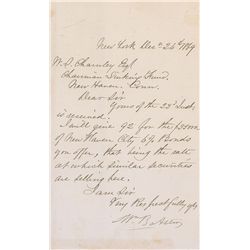 New York Dec 24th 1869
W. S. Charnley Esq
Chairman Sinking Fund,
New Haven, Conn.
Dear Sir
Yours of the 23d Inst.
is received.
I will give 92 for the
of New Haven City 6% Bonds
you offer, that being the rate
at which similar securities
are selling here.
I am Sir
Very Respectfully yrs